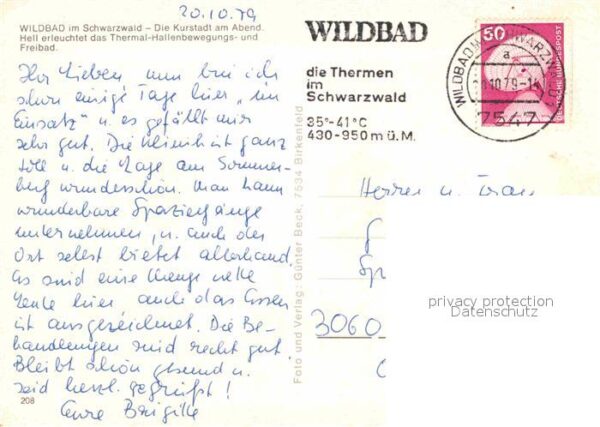 20.10.79
WILDBAD im Schwarzwald – Die Kurstadt am Abend.
Hell erleuchtet das Thermal-Hallenbewegungs- und
Freibad.
Ihr Lieben nun bin ich
schon einige Tage hier „im
Einsatz" u. es gefällt mir
sehr gut. Die Klinik ist ganz
toll u. die Lage am Sommer-
berg wunderschön. Man kann
wunderbare Spaziergänge
unternehmen, u. auch der
Ort selbst bietet allerhand.
Es sind eine Menge nette
Leute hier auch das Essen
ist ausgezeichnet. Die Be-
handlungen sind recht gut.
Bleibt schön gesund u.
seid herzl. gegrüßt!
Eure Brigitte
208
Foto und Verlag: Günter Beck, 7534 Birkenfeld
WILDBAD
die Thermen
im
Schwarzwald
35°-41°C
430-950 m ü. M.
WILDBAD SCHWARZW
a
10.79-14
7547
50
DEUTSCHE BUNDESPOST
Herrn u. Frau
3060
privacy protection
Datenschutz